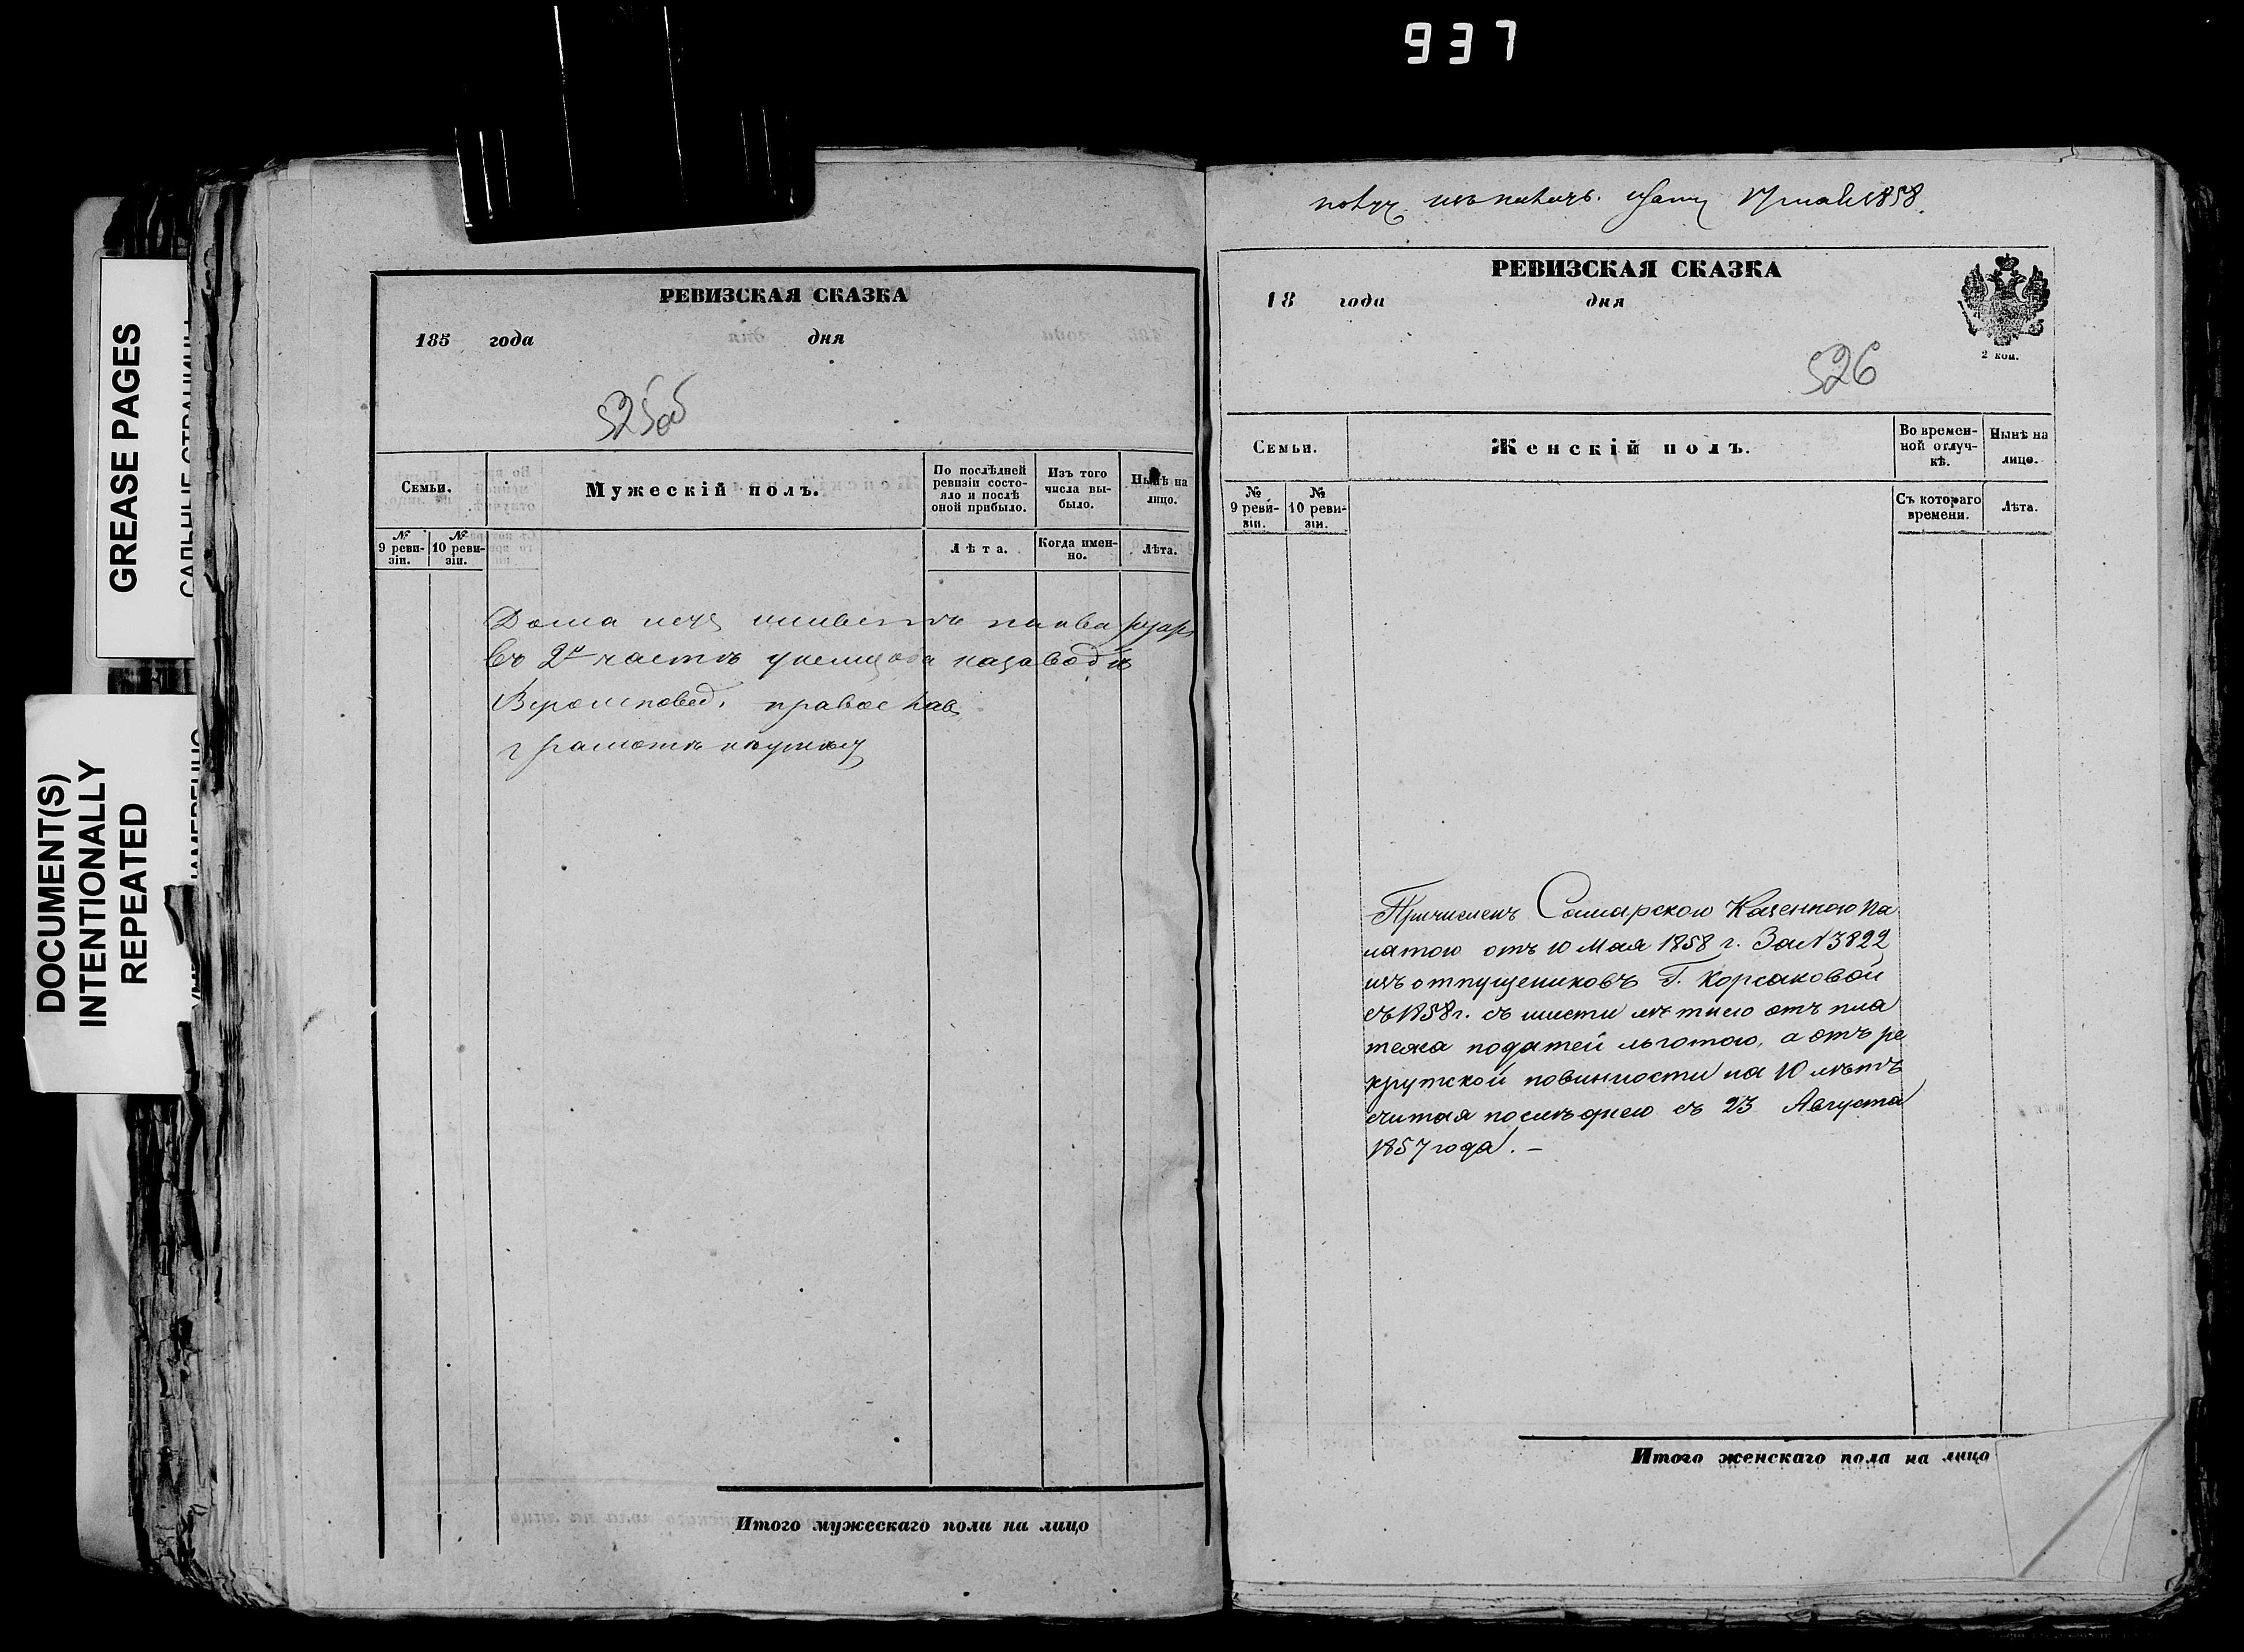 937
GREASE PAGES
DOCUMENT(S)
INTENTIONALLY
REPEATED
РЕВИЗСКАЯ СКАЗКА
185 года дня
525об
Семьи.
Мужескій полъ.
По послѣдней ревизіи состояло и послѣ оной прибыло.
Изъ того числа выбыло.
Нынѣ на лицо.
№ 9 ревизіи.
№ 10 ревизіи.
Лѣта.
Когда именно.
Лѣта.
Дома
въ 2й части
Вероисповед. православ
грамотѣ
Итого мужескаго пола на лицо
1858
РЕВИЗСКАЯ СКАЗКА
18 года дня
2 коп.
526
Семьи.
Женскій полъ.
Во временной отлучкѣ.
Нынѣ на лицо.
№ 9 ревизіи.
№ 10 ревизіи.
Съ котораго времени.
Лѣта.
Причисленъ Самарскою Казенною Па
латою отъ 10 Мая 1858 г. За №3822
изъ отпущениковъ Г. Корсаковой
съ 1858 г. съ шести лѣтнею отъ пла
тежа податей льготою, а отъ ре
крутской повинности на 10 лѣтъ
считая послѣднею съ 23 Августа
1857 года. –
Итого женскаго пола на лицо